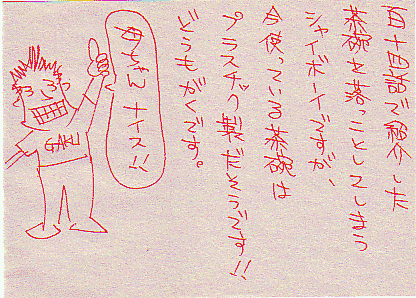 百十四話で紹介した
茶碗を落っことしてしまう
シャイボーイですが、
今使っている茶碗は
プラスチック製だそうです!!
どうもがくです。
母ちゃん ナイス!!
GAKU